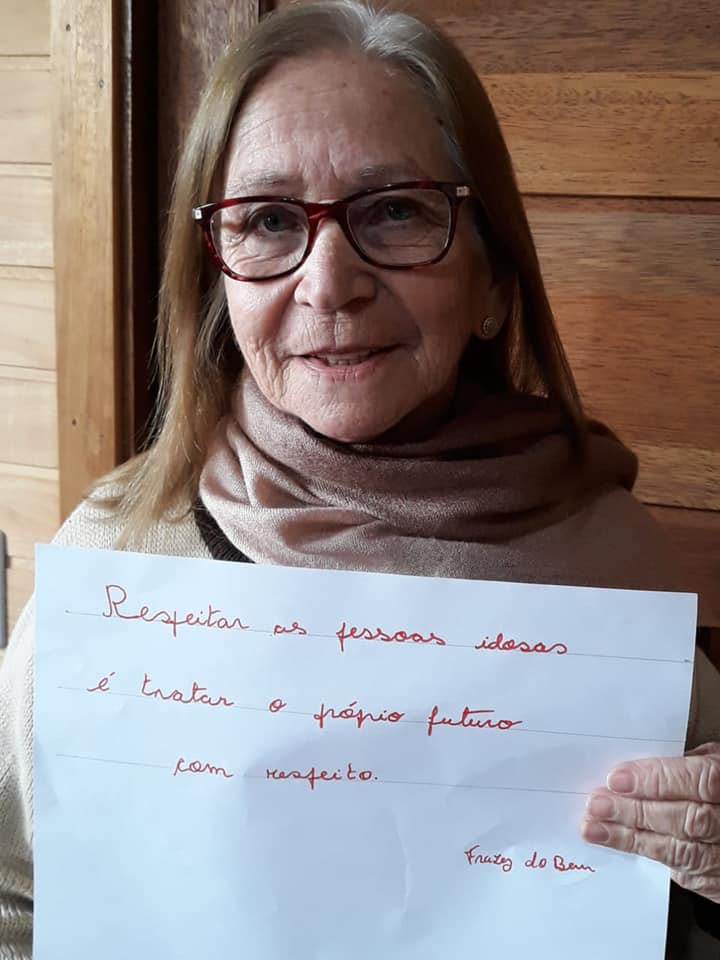 Respeitar as pessoas idosas
é tratar o própio futuro
com respeito.
Frazes do Bem